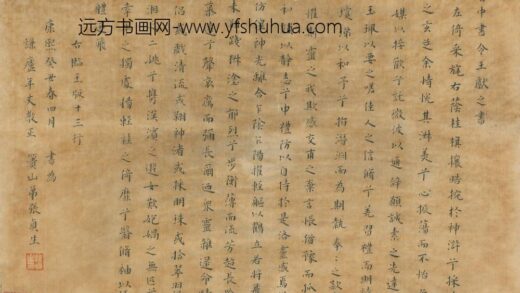 远方书画网-www.yfshuhua.com
中書令王獻之書
左倚采旄右蔭桂旗攘皓捥於神滸兮採
之玄芝余情悅其淑美兮心振蕩而不怡
媒以接歡兮託微波以通辭願誠素之先達
玉珮以要之嗟佳人之信脩兮羌習禮而明
瓊珶以和予兮指潛淵而為期執拳之款
懼斯靈之我欺感交甫之棄言悵猶豫而狐
和顏以靜志兮申禮防以自持於是洛靈感焉
傍神光離合乍陰乍陽擢輕軀以鶴立若將飛
踐椒塗之郁烈兮步衡薄而流芳超長吟
聲哀厲而彌長爾迺衆靈雜遝命
侶或戲清流或翔神渚或採明珠或拾翠羽
湘二妃兮攜漢濱之遊女歎匏媧之無匹
牽之獨處揚輕袿之倚靡兮翳脩袖以
體飛
右臨王獻十三行
康熙癸丑春四月 書為
謙廬年丈教正 簣山弟張貞生